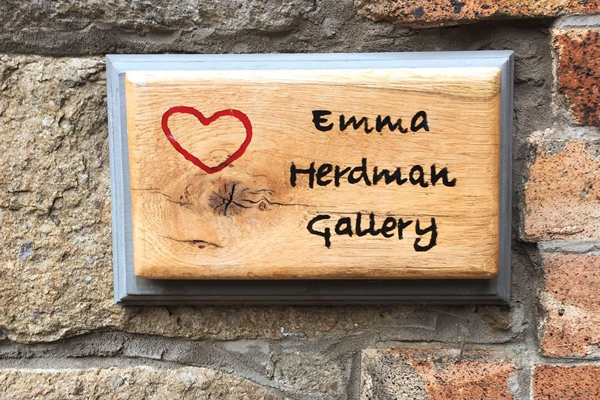 Emma
Herdman
Gallery